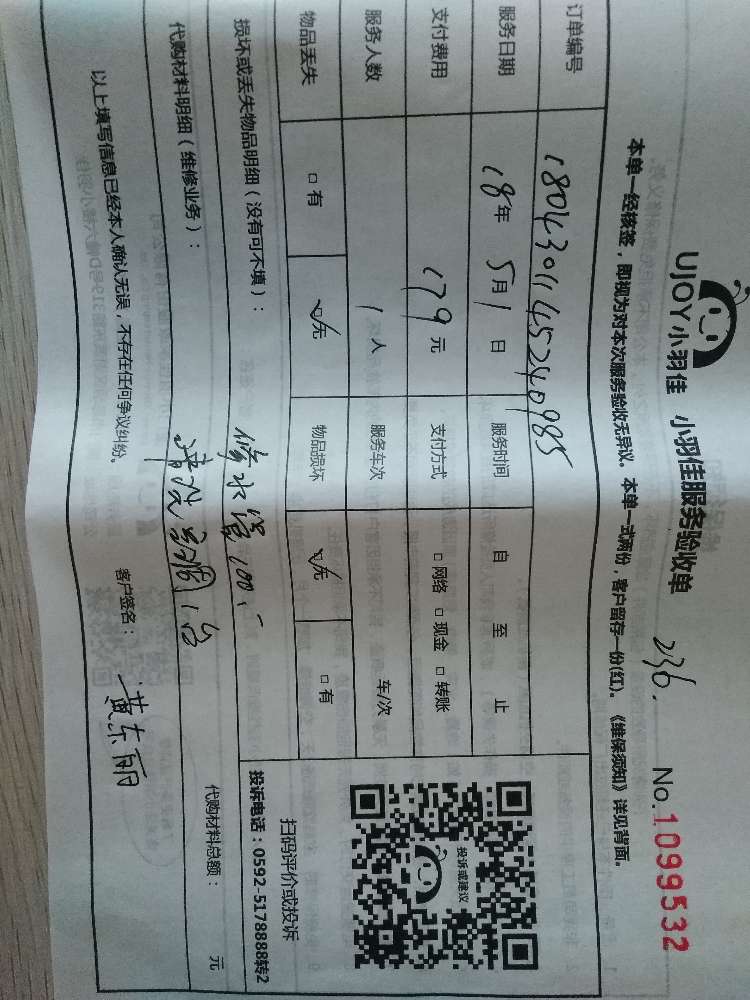 UJOY小羽佳 小羽佳服务验收单 236. No.1099532
本单一经核签，即视为对本次服务验收无异议。本单一式两份，客户留存一份(红)。《维保须知》详见背面。
订单编号 180430114524098５
服务日期 18年 5月1日 服务时间 自 至 止
支付费用 179元 支付方式 □网络 □现金 □转账
服务人数 1人 服务车次 车/次
物品丢失 □有 □无 物品损坏 □无 □有
投诉或建议
扫码评价或投诉
投诉电话：0592-5178888转2
损坏或丢失物品明细（没有可不填）：
修水管100.-
代购材料明细（维修业务）： 代购材料总额： 元
清洗 1台
以上填写信息已经本人确认无误，不存在任何争议纠纷。 客户签名：黄东丽